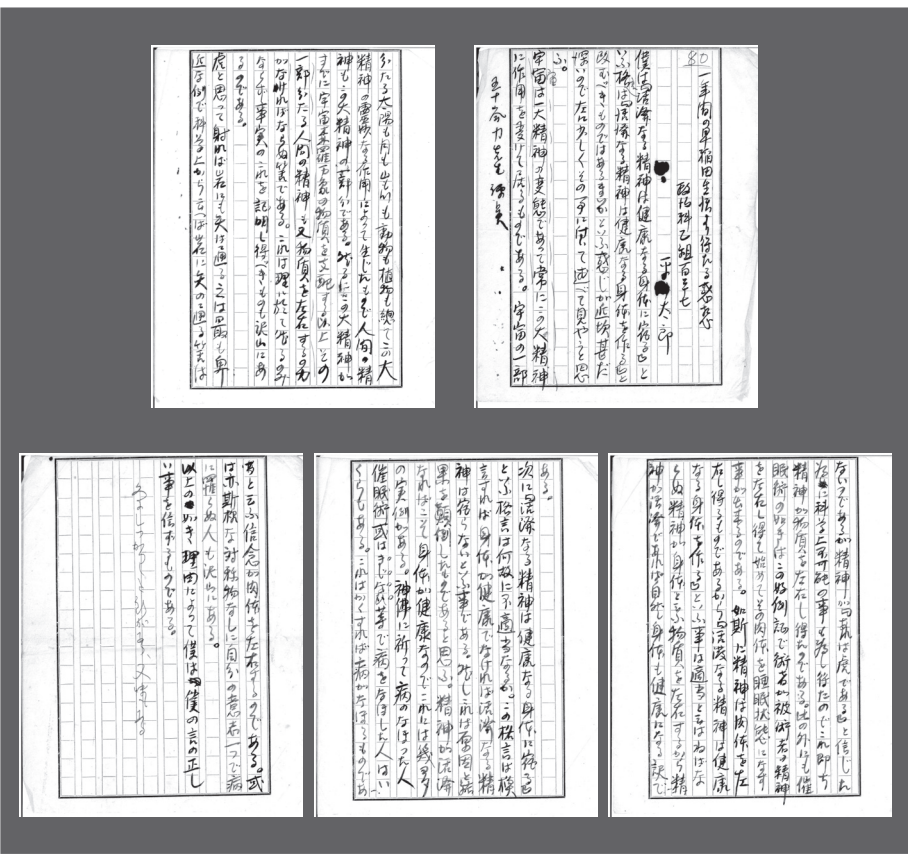 80
一年間の早稲田生活より得たる感想
政治科乙組百三七
平 太郎
僕は「活溌なる精神は健康なる身体に宿る」と
いふ格は「活溌なる精神は健康なる身体を作る」と
改むべきものではあるまいかといふ感じが近頃甚だ
深いので左に少しくその事に就て述べて見やうと思
ふ。
宇宙は一大精神の変態であって常にこの大精神
に作用を受けて居るものである。宇宙の一部
五十嵐力先生
分たる太陽も月も山も川も動物も植物も総てこの大
精神の霊妙なる作用によって生じたもので人間の精
神もこの大精神の一部分である。然るにこの大精神が
すでに宇宙森羅万象の物質を支配する以上その
一部分たる人間の精神も又物質を左右するの力
がなければならぬ筈である。これは理に於て然るのみ
ならず事実のこれを証明し得べきものも沢山にあ
るのである。
虎と思って射れば岩にも矢は通るとは最も卑
近な例で科学上から立つば岩に矢の通る筈は
ないのであるが精神が「岩は虎である」と信じた
為に科学上不可能の事も為し得たのでこれ即ち
精神が物質を左右し得たのである。此の外にも催
眠術の如きはこの好例証で術者が被術者の精神
を左右し得て始めてその肉体を睡眠状態になす
事が出来るのである。如斯に精神は肉体を左
右し得るものであるから「活溌なる精神は健康
なる身体を作る」といふ事は適当と云はねばな
らぬ精神が身体と云ふ物質を左右するから精
神が活溌であれば自然と身体も健康になる訳で
ある。
次に「活溌なる精神は健康なる身体に宿る」
といふ格言は何故に不適当なるか。この格言は換
言すれば身体が健康でなければ活溌なる精
神は宿らないといふ事である。然しこれは原因と結
果を顛倒したものであると思ふ。精神が活溌
なればこそ身体が健康なのでこれには幾多
の実例がある。神佛に祈って病のなほった人
催眠術或はまじない等で病をなほした人はい
くらもある。これはかくすれば病がなほるものであ
ると云ふ信念が肉体を左右するのである。或
は亦斯様な対称物なしに自分の意志一つで病
に罹らぬ人も沢山にある。
以上の如き理由によって僕は僕の言の正し
い事を信ずるものである。